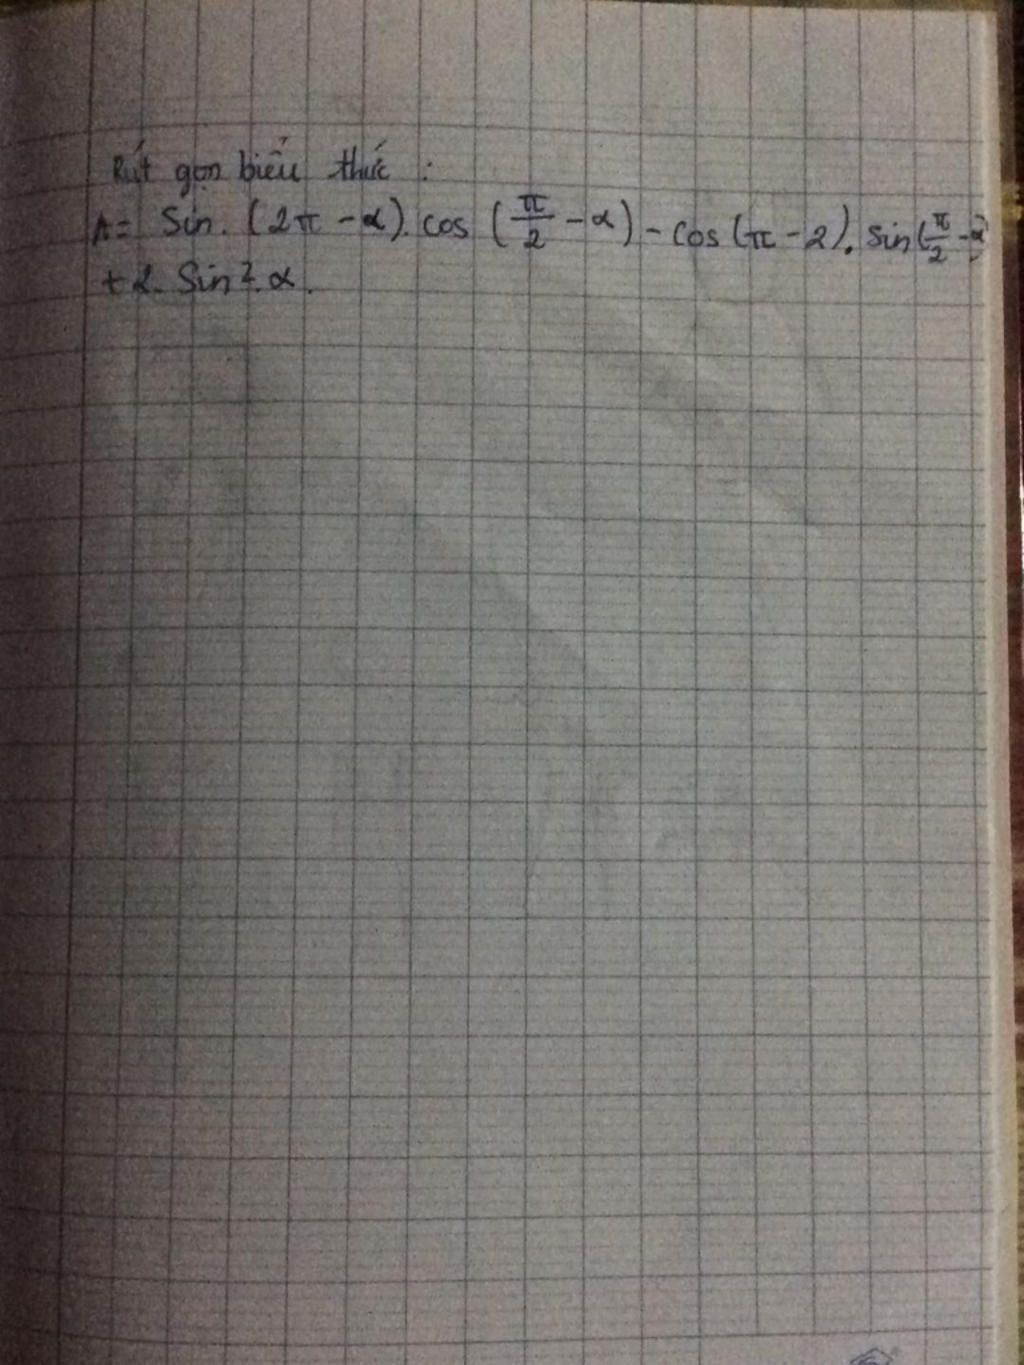 Rút gọn biểu thức :
A = Sin. (2π - α). cos (π/2 - α) - cos (π - 2). sin (π/2 - α)
+ 2. Sin². α.